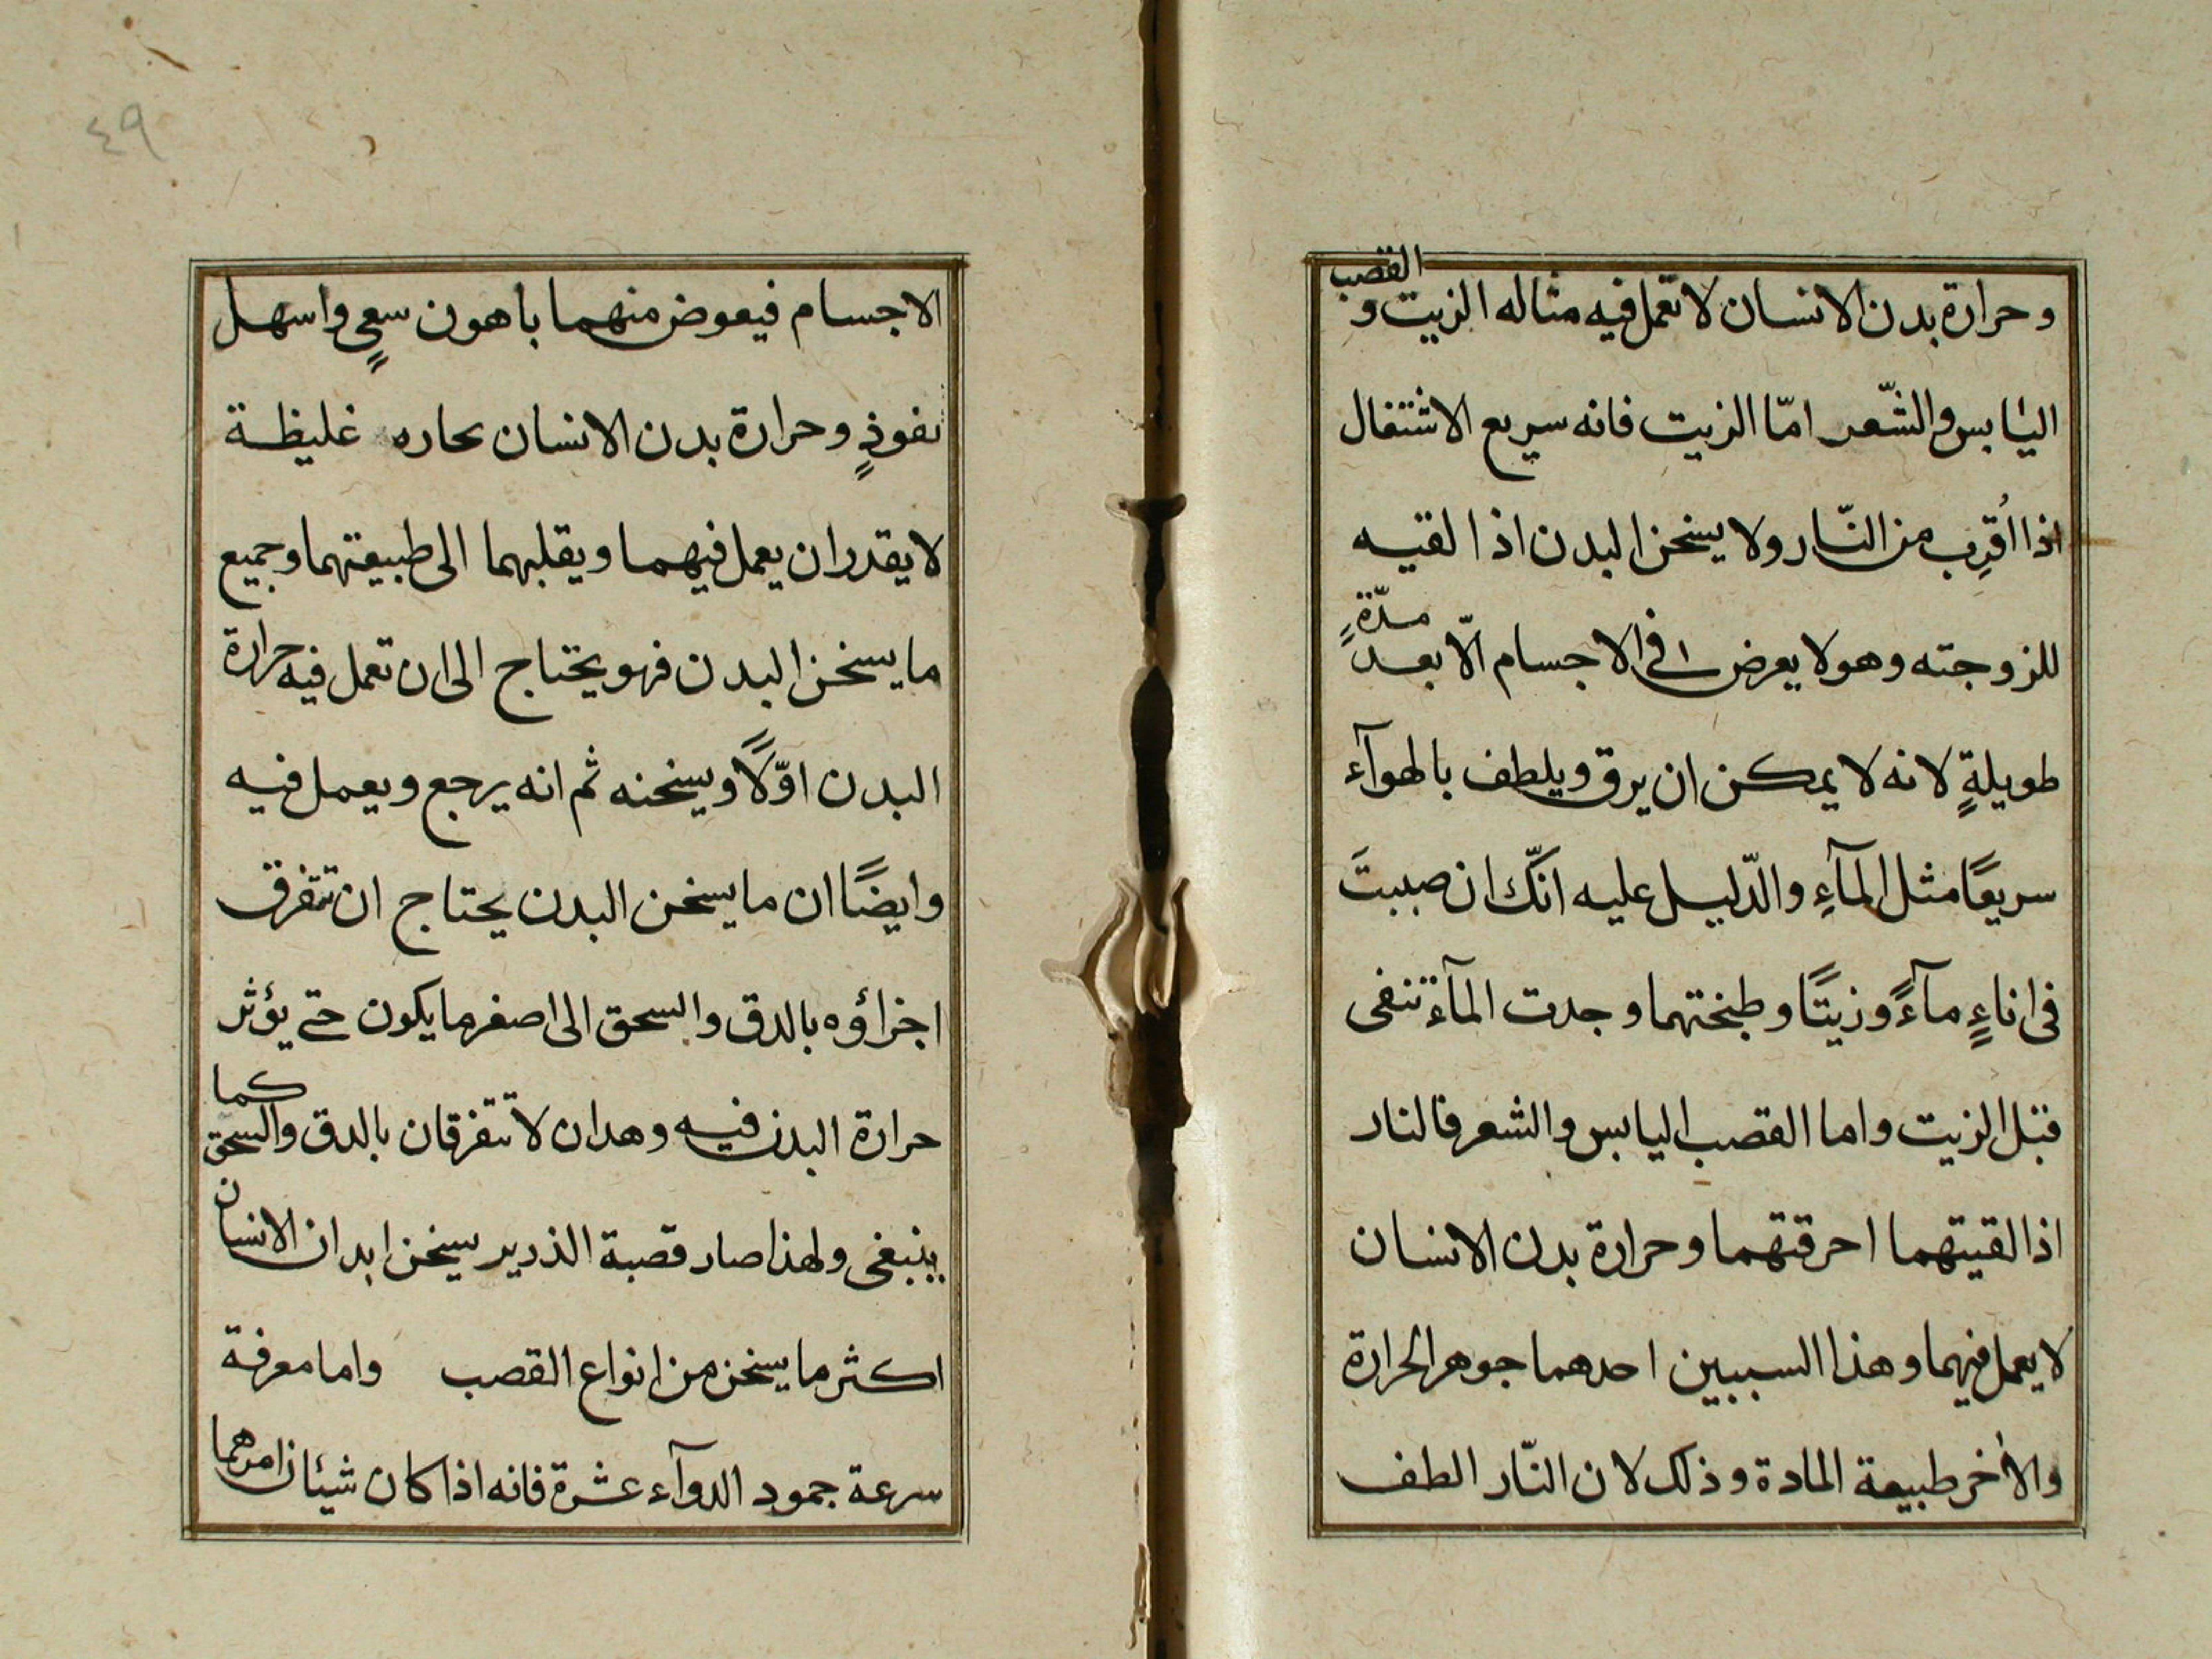 وحرارة بدن الانسان لا تعمل فيه مثاله الزيت و القصب
اليابس والشّعر امّا الزيت فانه سريع الاشتغال
اذا اُقرِب من النّار ولا يسخن البدن اذا لقيه
للزوجته وهو لا يعرض ١ فى الاجسام الّا بعد مدّةٍ
طويلةٍ لانه لا يمكن ان يرق ويلطف بالهوآء
سريعًا مثل المآءِ والدّليل عليه انّك ان صببتَ
فى اناءٍ مآءً وزيتًا وطبختهما وجدت المآء تنفى
قبل الزيت واما القصب اليابس والشعر فالنار
اذا لقيتهما احرقتهما وحرارة بدن الانسان
لا يعمل فيهما وهذا السببين احدهما جوهر الحرارة
والاخر طبيعة المادة وذلك لان النّار الطف
٤٩
الاجسام فيعوض منهما باهون سعىٍ واسهل
نفوذٍ وحرارة بدن الانسان بحاره غليظة
لا يقدر ان يعمل فيهما ويقلبهما الى طبيعتهما وجميع
ما يسخن البدن فهو يحتاج الى ان تعمل فيه حرارة
البدن اوّلًا ويسخنه ثم انه يرجع ويعمل فيه
وايضًا ان ما يسخن البدن يحتاج ان تتفرق
اجزاؤه بالدق والسحق الى اصغر ما يكون حتى يؤثر
حرارة البدن فيه وهدان لا تتفرقان بالدق والسحق كما
ينبغى ولهذا صار قصبة الذدير يسخن ابدان الانسان
اكثر ما يسخن من انواع القصب واما معرفة
سرعة جمود الدوآء عشرة فانه اذا كان شيئان امرهما